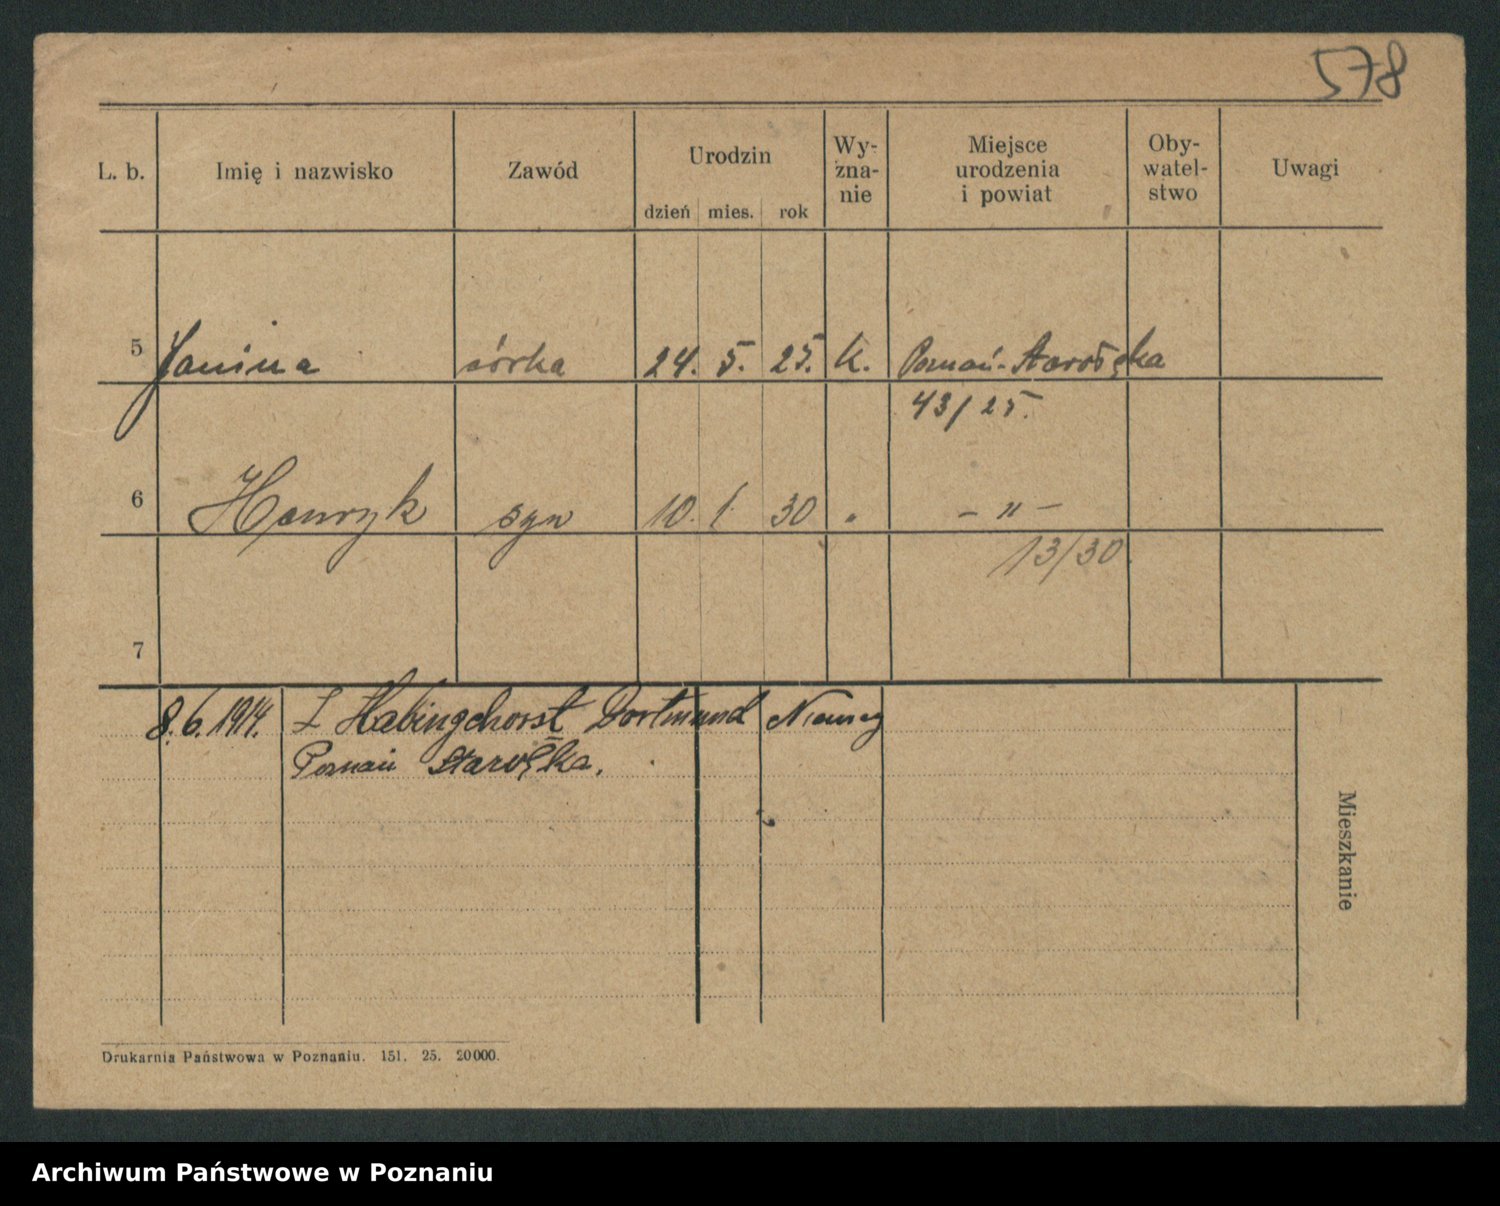 578
L. b. Imię i nazwisko Zawód Urodzin dzień mies. rok Wy-zna-nie Miejsce urodzenia i powiat Oby-watel-stwo Uwagi
5 Janina córka 24. 5. 25. k. Poznań-Starołęka
43/25.
6 Henryk syn 10. 1. 30 " — " —
13/30.
7
8.6.1914. z Habinghorst Dortmund Niemcy
Poznań Starołęka.
Mieszkanie
Drukarnia Państwowa w Poznaniu. 151. 25. 20000.
Archiwum Państwowe w Poznaniu